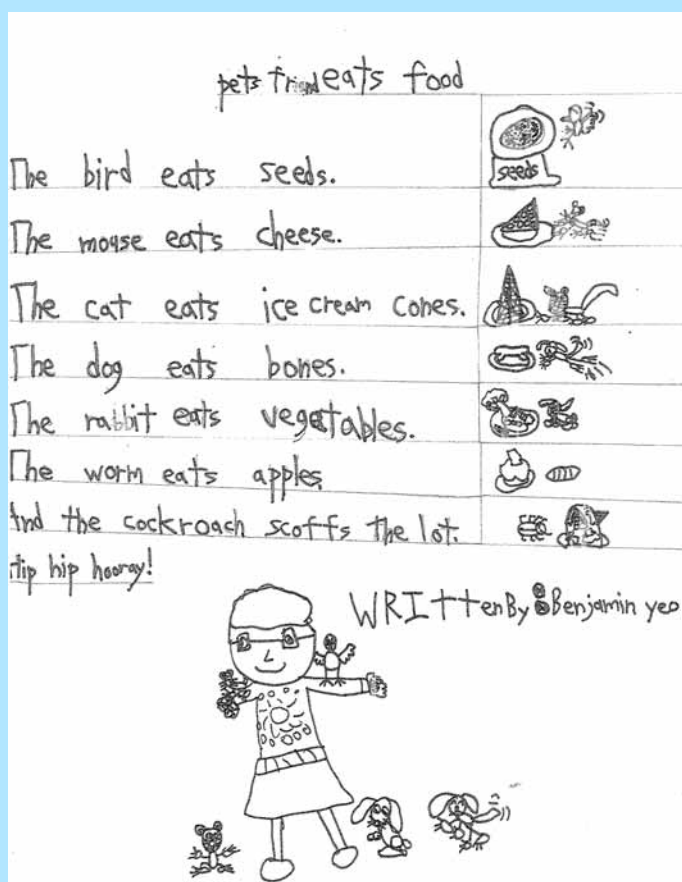 pets friend eats food
The bird eats seeds.
seeds
The mouse eats cheese.
The cat eats ice cream cones.
The dog eats bones.
The rabbit eats vegetables.
The worm eats apples.
And the cockroach scoffs the lot.
Hip hip hooray!
WRIttenBy: Benjamin yeo